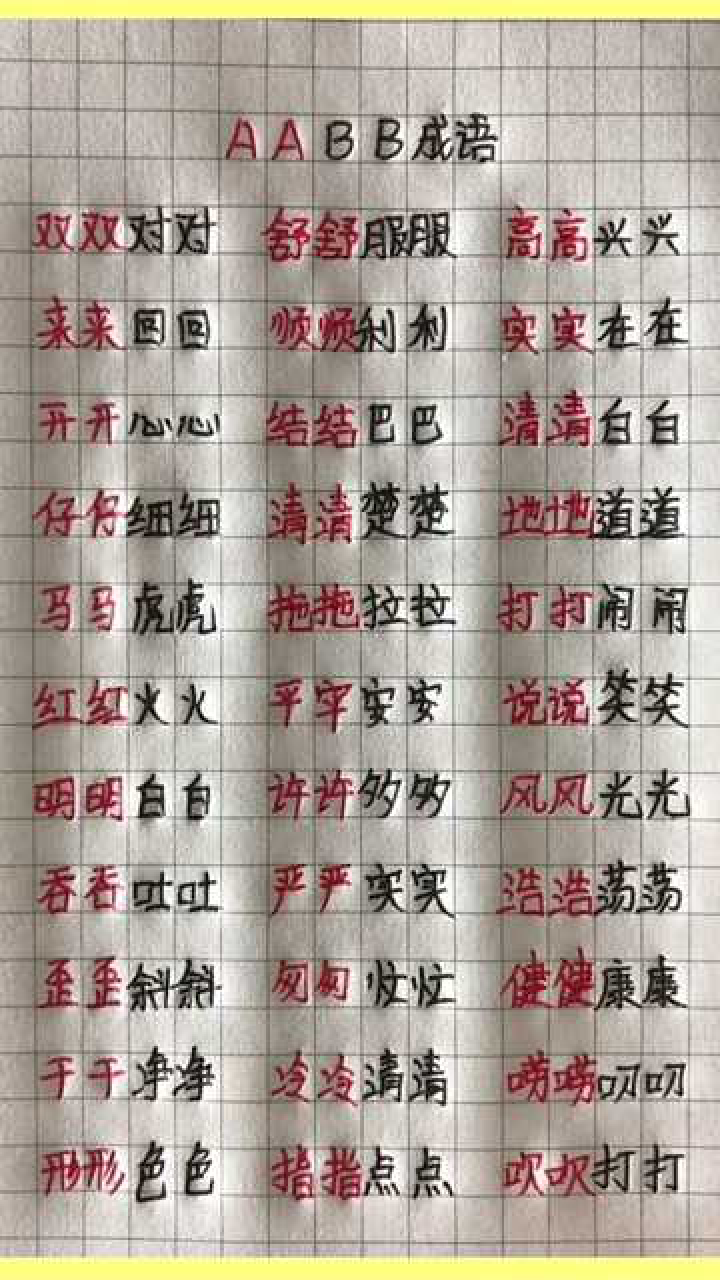 AABB成语
双双对对 舒舒服服 高高兴兴
来来回回 顺顺利利 实实在在
开开心心 结结巴巴 清清白白
仔仔细细 清清楚楚 地地道道
马马虎虎 拖拖拉拉 打打闹闹
红红火火 平平安安 说说笑笑
明明白白 许许多多 风风光光
吞吞吐吐 严严实实 浩浩荡荡
歪歪斜斜 匆匆忙忙 健健康康
干干净净 冷冷清清 唠唠叨叨
形形色色 指指点点 吹吹打打